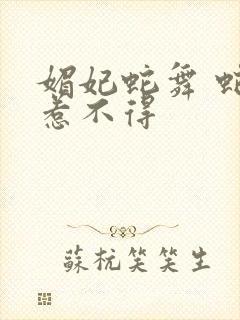 媚妃蛇舞 蛇
惹不得
蘇杭笑笑生